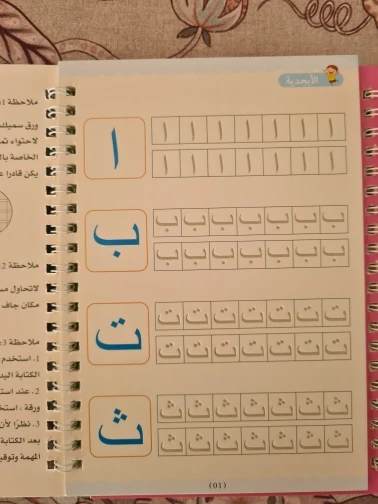 الأبجدية
ا
ا ا ا ا ا ا ا
ا ا ا ا ا ا ا
ب
ب ب ب ب ب ب ب
ب ب ب ب ب ب ب
ت
ت ت ت ت ت ت ت
ت ت ت ت ت ت ت
ث
ث ث ث ث ث ث ث
ث ث ث ث ث ث ث
(01)
ملاحظة 1:
ورق سميك
لاحتواء
الخاصة
يكن قادرا
ملاحظة 2:
لاتحاول
مكان جاف
ملاحظة 3:
1. استخدم
الكتابة
2. عند
ورقة ،
3. نظرًا لأن
بعد الكتابة
المهمة